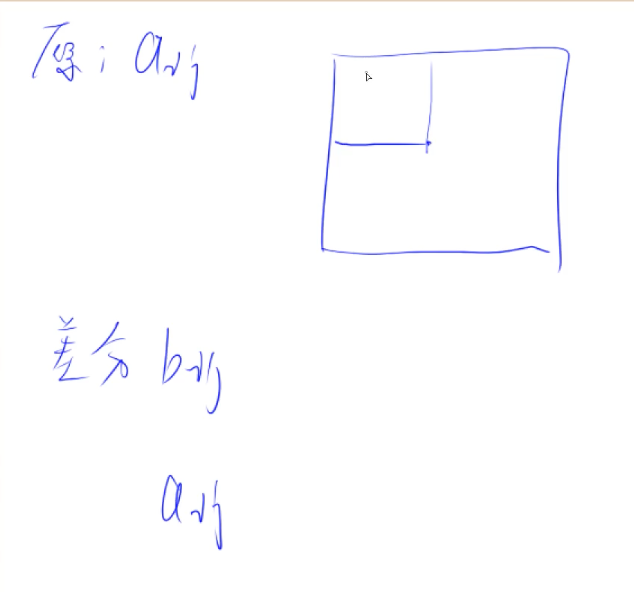 原：aij
差分 bij
aij